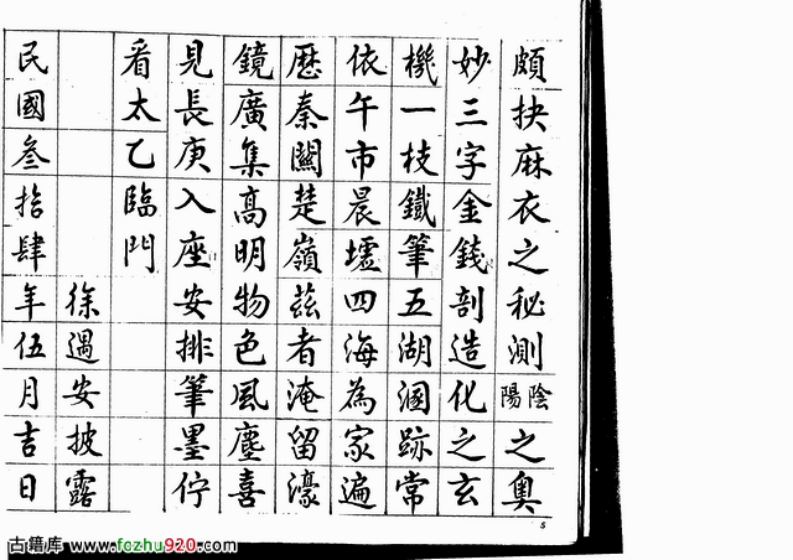 頗抉麻衣之秘測陰陽之奥
妙三字金錢剖造化之玄
機一枝鐵筆五湖溷跡常
依午市晨墟四海為家遍
歷秦關楚嶺兹者淹留濠
鏡廣集高明物色風塵喜
見長庚入座安排筆墨佇
看太乙臨門
徐遇安披露
民國叁拾肆年伍月吉日
5
古籍库 www.fczhu920.com